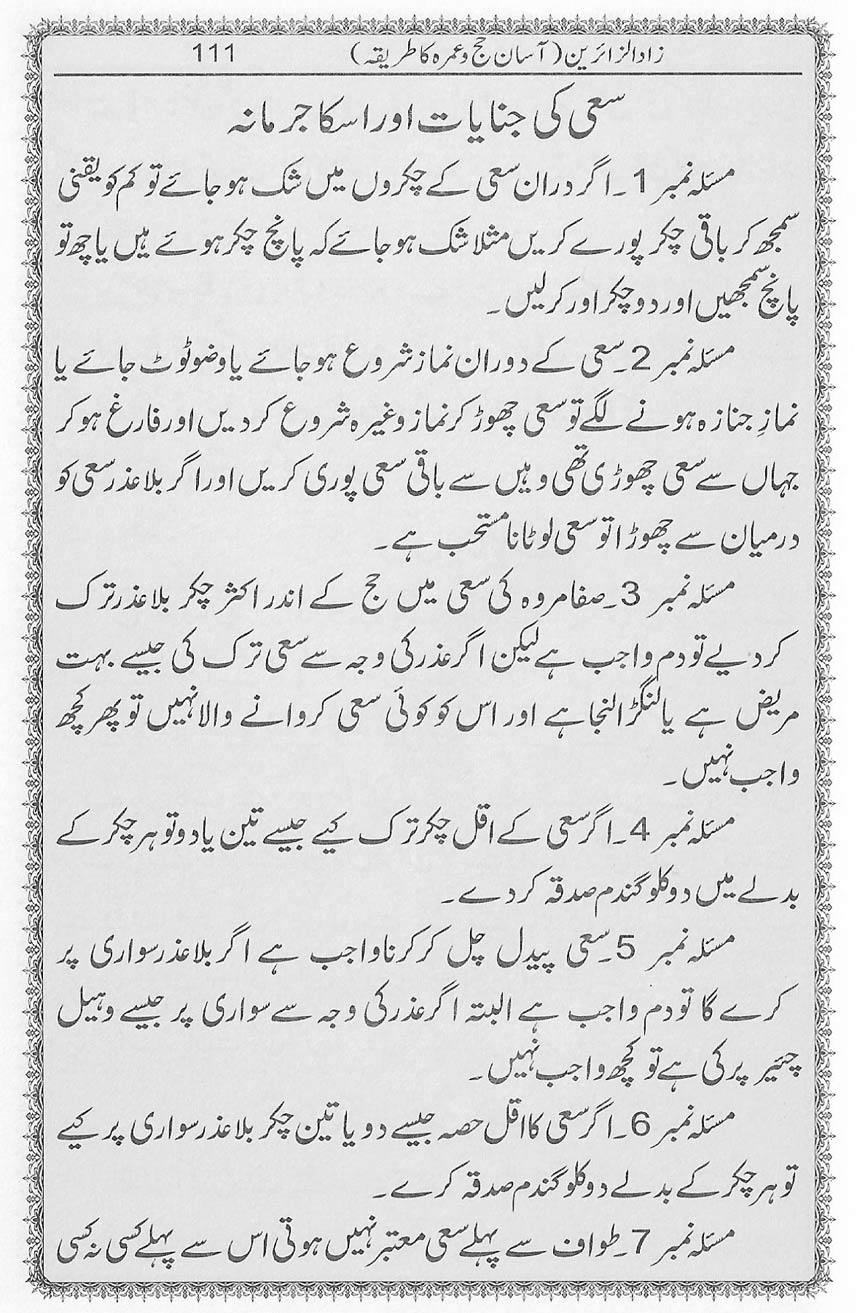 زاد الزائرین (آسان حج و عمرہ کا طریقہ) 111
سعی کی جنایات اور اسکا جرمانہ
مسئلہ نمبر 1۔ اگر دران سعی کے چکروں میں شک ہو جائے تو کم کو یقنی
سمجھ کر باقی چکر پورے کریں مثلا شک ہو جائے کہ پانچ چکر ہوئے ہیں یا چھ تو
پانچ سمجھیں اور دو چکر اور کرلیں۔
مسئلہ نمبر 2۔ سعی کے دوران نماز شروع ہو جائے یا وضو ٹوٹ جائے یا
نمازِ جنازہ ہونے لگے تو سعی چھوڑ کر نماز وغیرہ شروع کردیں اور فارغ ہوکر
جہاں سے سعی چھوڑی تھی وہیں سے باقی سعی پوری کریں اور اگر بلا عذر سعی کو
درمیان سے چھوڑا تو سعی لوٹانا مستحب ہے۔
مسئلہ نمبر 3۔ صفا مروہ کی سعی میں حج کے اندر اکثر چکر بلا عذر ترک
کردیے تو دم واجب ہے لیکن اگر عذر کی وجہ سے سعی ترک کی جیسے بہت
مریض ہے یا لنگڑا لنجا ہے اور اس کو کوئی سعی کروانے والا نہیں تو پھر کچھ
واجب نہیں۔
مسئلہ نمبر 4۔ اگر سعی کے اقل چکر ترک کیے جیسے تین یا دو تو ہر چکر کے
بدلے میں دو کلو گندم صدقہ کردے۔
مسئلہ نمبر 5۔ سعی پیدل چل کر کرنا واجب ہے اگر بلا عذر سواری پر
کرے گا تو دم واجب ہے البتہ اگر عذر کی وجہ سے سواری پر جیسے وہیل
چئیر پر کی ہے تو کچھ واجب نہیں۔
مسئلہ نمبر 6۔ اگر سعی کا اقل حصہ جیسے دو یا تین چکر بلا عذر سواری پر کیے
تو ہر چکر کے بدلے دو کلو گندم صدقہ کرے۔
مسئلہ نمبر 7۔ طواف سے پہلے سعی معتبر نہیں ہوتی اس سے پہلے کسی نہ کسی